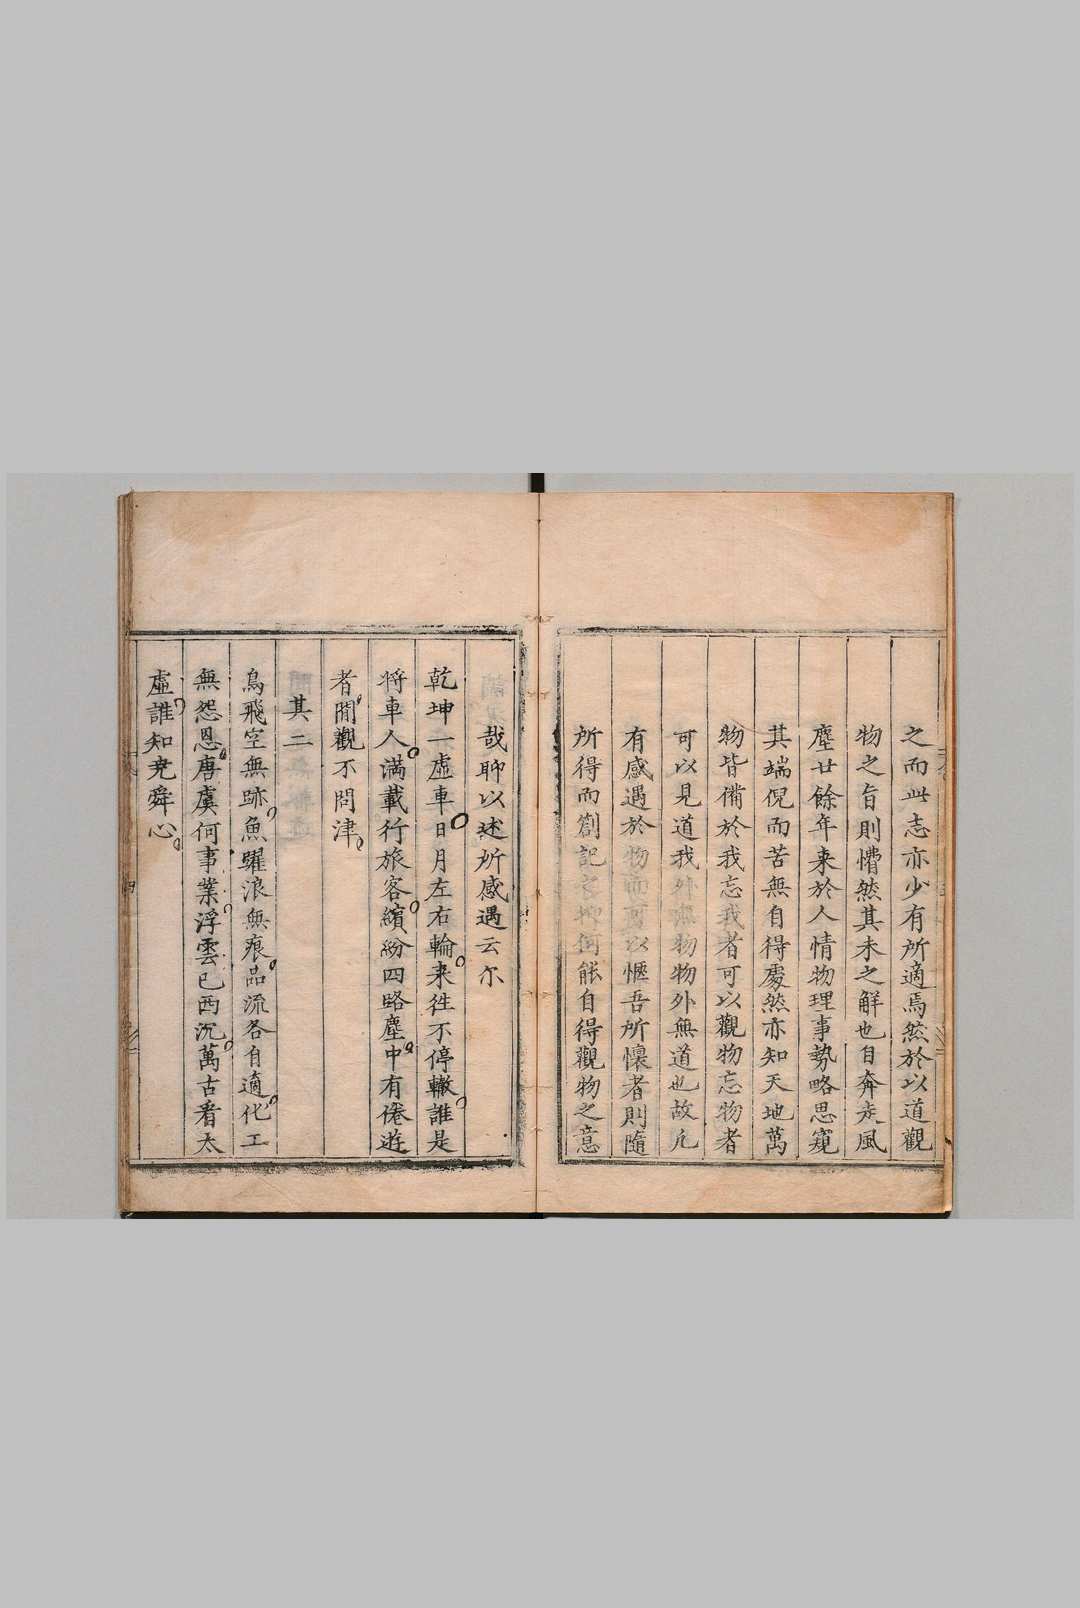 之而此志亦少有所適焉然於以道觀
物之旨則懵然其未之解也自奔走風
塵廿餘年来於人情物理事勢略思窺
其端倪而苦無自得處然亦知天地萬
物皆備於我忘我者可以觀物忘物者
可以見道我外無物物外無道也故凢
有感遇於物而可以愜吾所懷者則隨
所得而劄記之抑何能自得觀物之意
哉聊以述所感遇云尔
乾坤一虛車日月左右輪来徃不停轍誰是
将車人滿載行旅客繽紛四略塵中有倦遊
者閒觀不問津
其二
鳥飛空無跡魚躍浪無痕品流各自適化工
無怨恩唐虞何事業浮雲已西沉萬古看太
虛誰知尭舜心
四